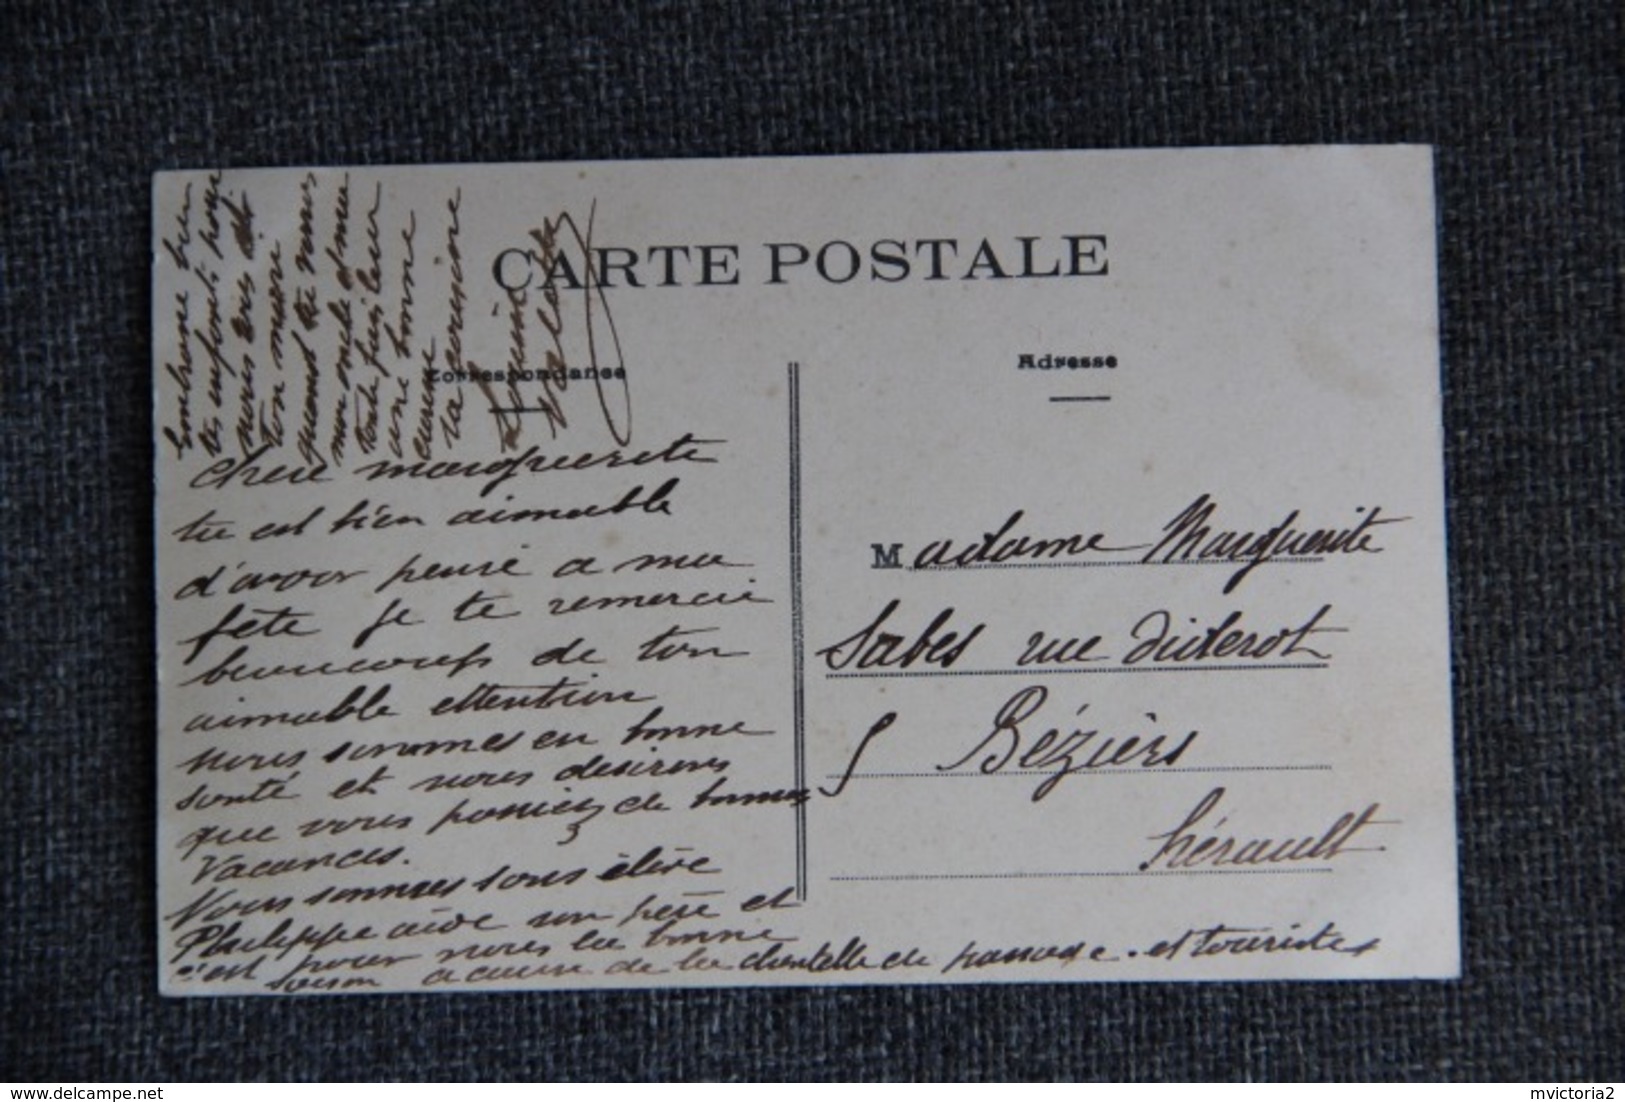 CARTE POSTALE
Correspondance
Adresse
Chere marguerite
tu est bien aimable
d'avoir pensé a ma
fête je te remercie
beaucoup de ton
aimable attention
nous sommes en bonne
santé et nous desirons
que vous passiez de bonnes
Vacances.
Nous sommes sous élève
Philippe aide son père et
c'est pour nous la bonne
saison a cause de la clientelle de passage. et touristes
Embrasse bien
tes enfants pour
nous
ton mari
quand
une bonne
Louise
Madame Marguerite
Sabes rue Diderot
Béziers
Hérault
delcampe.net
mvictoria2